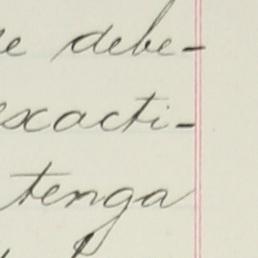 debe-
exacti-
tenga